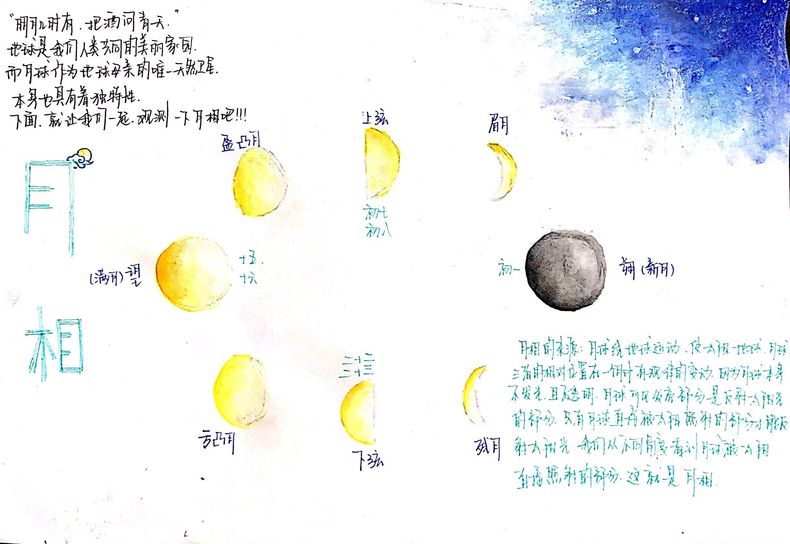 "明月几时有，把酒问青天."
地球是我们人类共同的美丽家园.
而月球作为地球母亲的唯一天然卫星.
本身也具有着独特性.
下面.就让我们一起.观测一下月相吧!!!
月
相
盈凸月
上弦
初七
初八
眉月
(满月)望
十五.
十六
初一
朔(新月)
亏凸月
二十二
二十三
下弦
残月
月相的来源：月球绕地球运动.使太阳.地球.月球
三者的相对位置在一个月中有规律的变动.因为月球本身
不发光.且不透明.月球可见发亮部分是反射太阳光
的部分.只有月球直接被太阳照射的部分才能反
射太阳光.我们从不同角度看到月球被太阳
直接照射的部分.这就是月相.